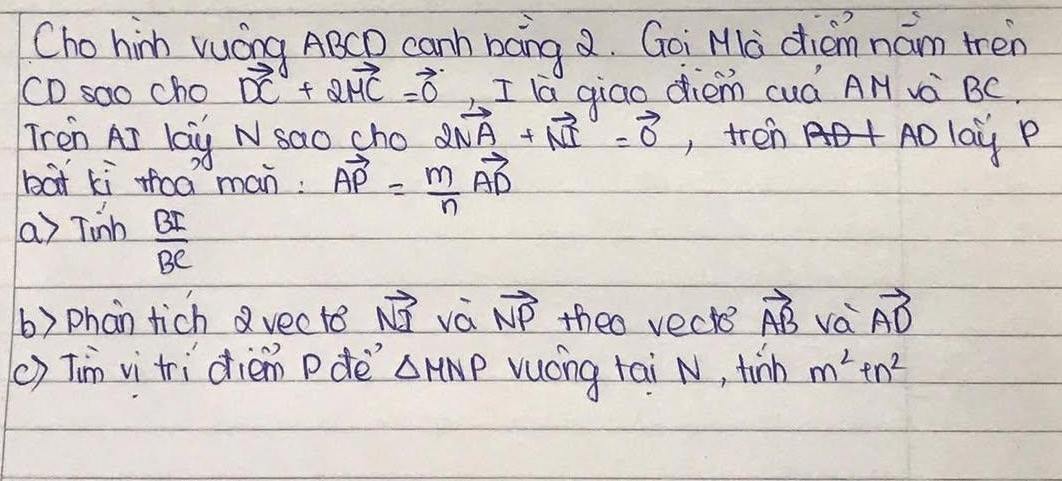 Cho hình vuông ABCD cạnh bằng 2. Gọi M là điểm nằm trên
CD sao cho $\overrightarrow{DC} + 2\overrightarrow{MC} = \vec{0}$, I là giao điểm của AM và BC.
Trên AI lấy N sao cho $2\overrightarrow{NA} + \overrightarrow{NI} = \vec{0}$, trên AD lấy P
bất kì thoả mãn: $\overrightarrow{AP} = \frac{m}{n} \overrightarrow{AD}$
a> Tính $\frac{BI}{BC}$
b> Phân tích 2 vectơ $\overrightarrow{NI}$ và $\overrightarrow{NP}$ theo vectơ $\overrightarrow{AB}$ và $\overrightarrow{AD}$
c) Tìm vị trí điểm P để △MNP vuông tại N, tính m² + n²